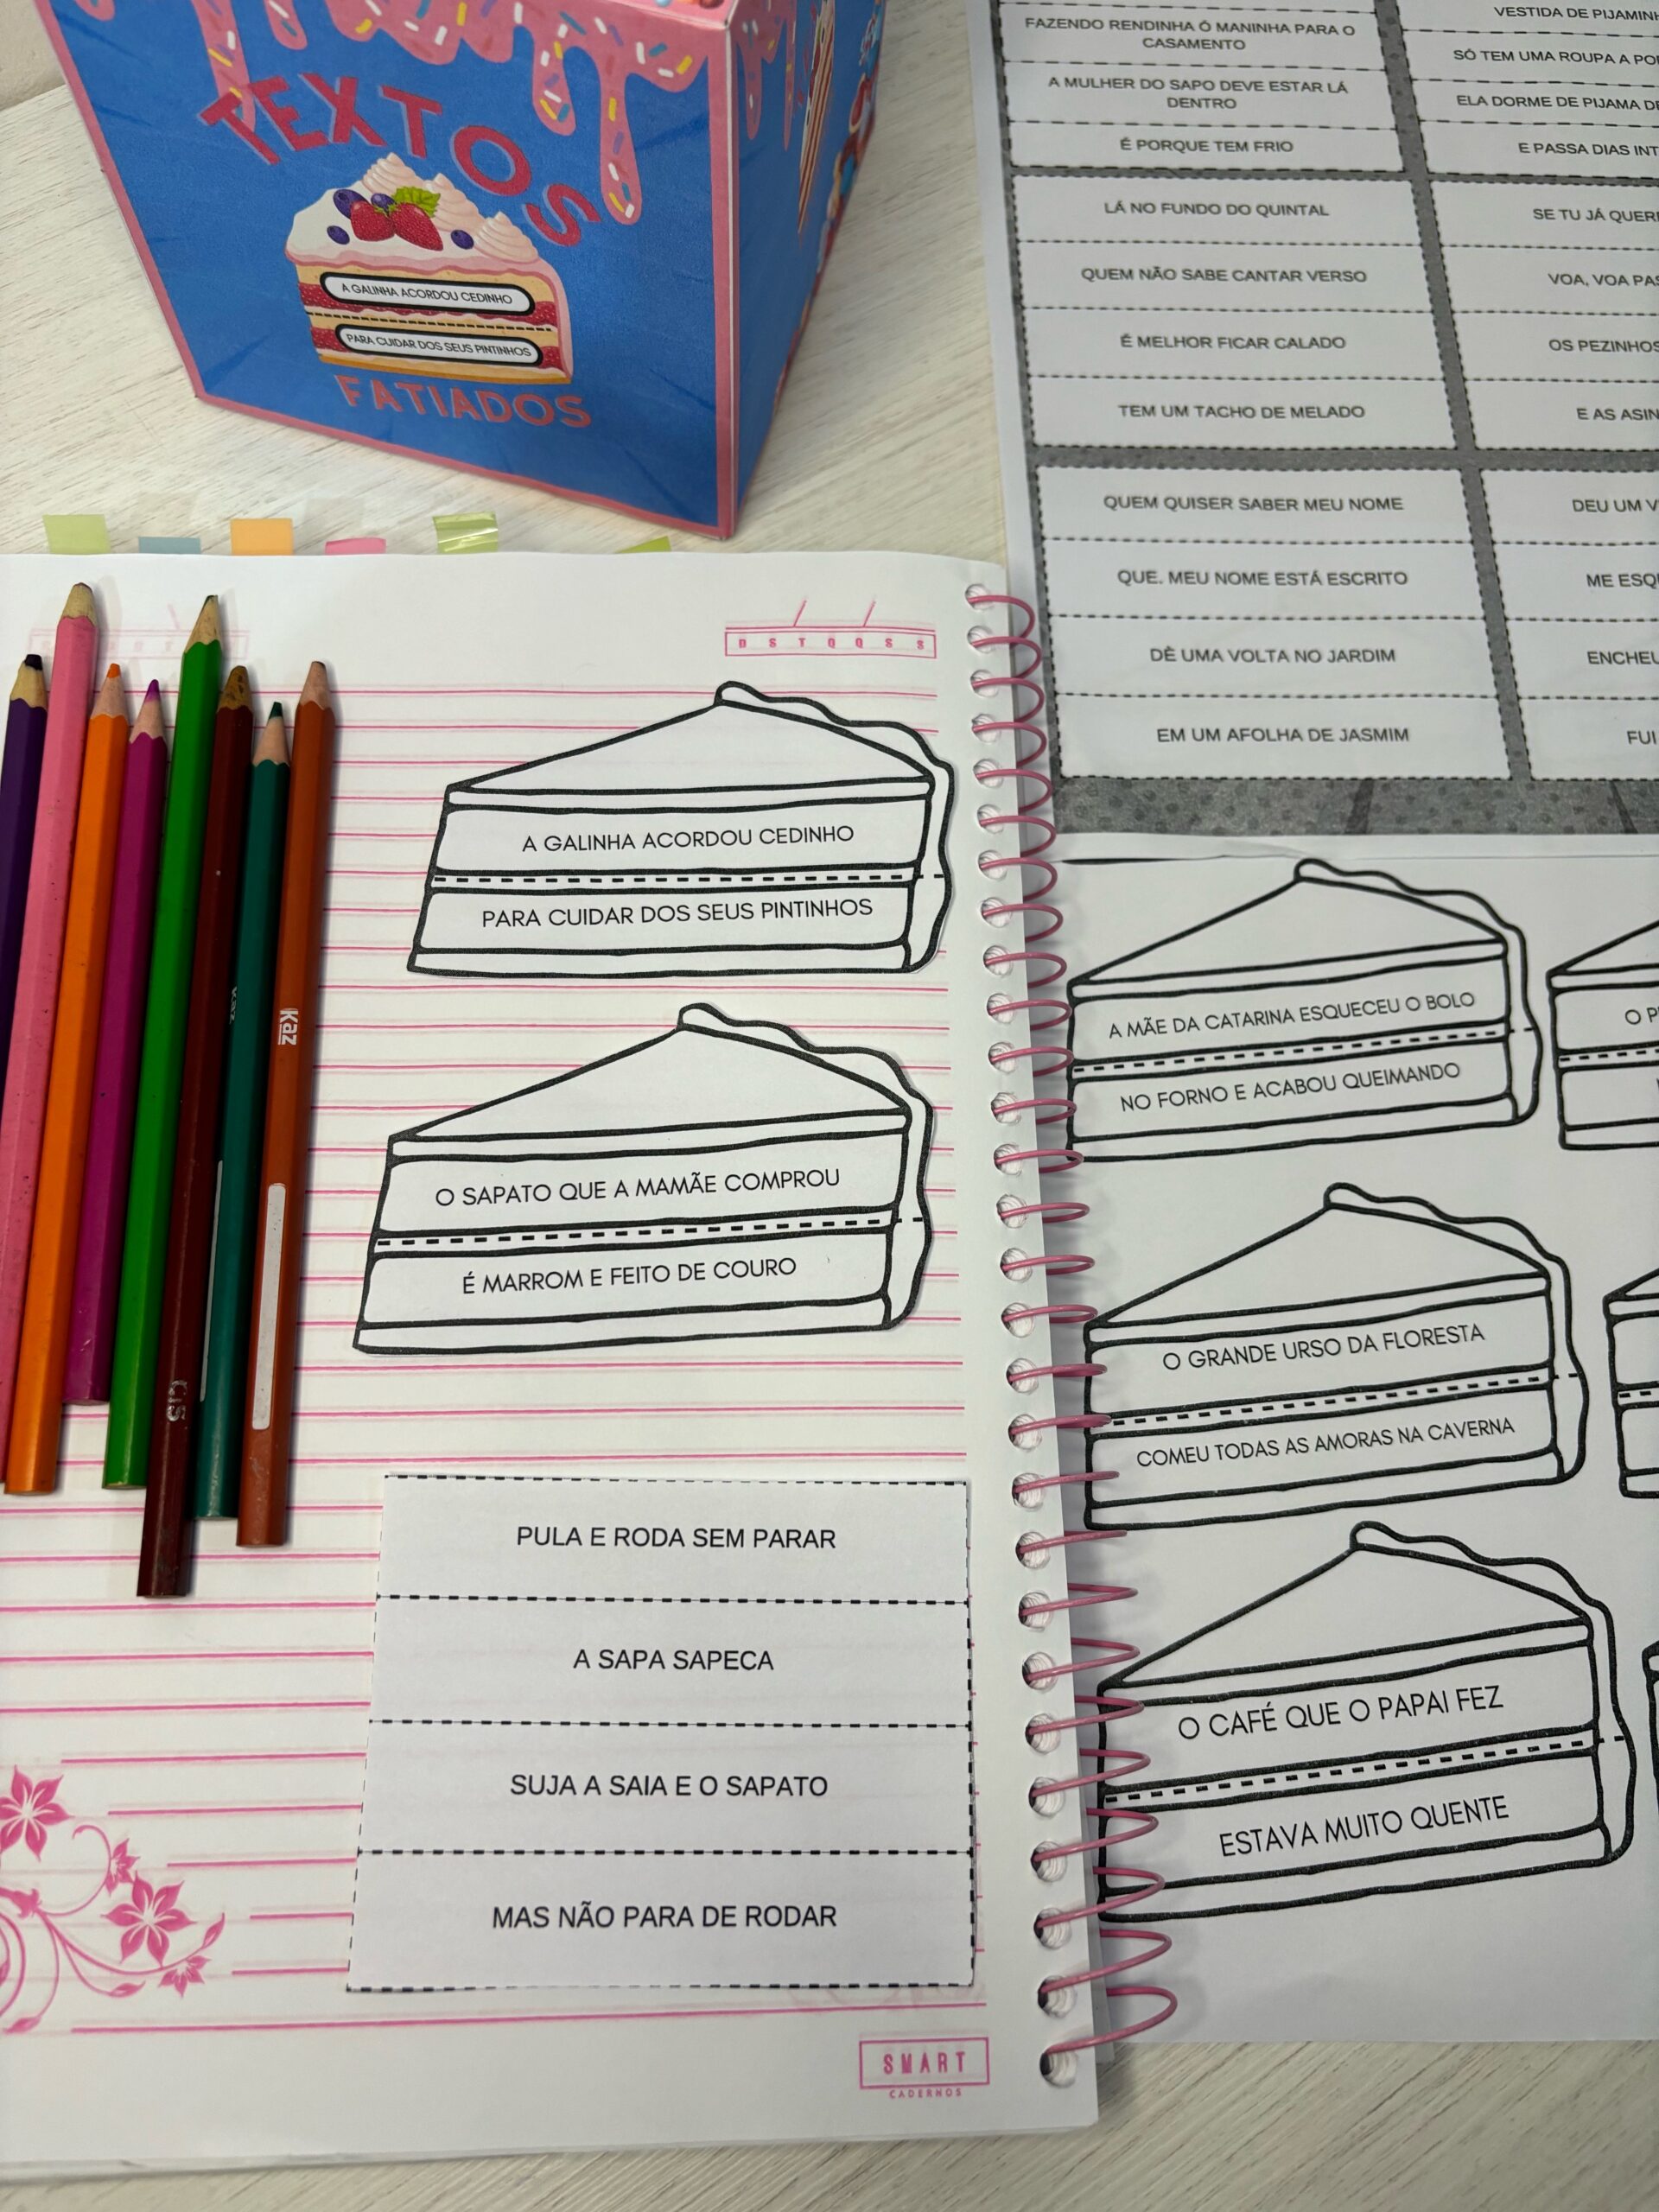 TEXTOS
A GALINHA ACORDOU CEDINHO
PARA CUIDAR DOS SEUS PINTINHOS
FATIADOS
FAZENDO RENDINHA Ó MANINHA PARA O
CASAMENTO
A MULHER DO SAPO DEVE ESTAR LÁ
DENTRO
É PORQUE TEM FRIO
LÁ NO FUNDO DO QUINTAL
QUEM NÃO SABE CANTAR VERSO
É MELHOR FICAR CALADO
TEM UM TACHO DE MELADO
QUEM QUISER SABER MEU NOME
QUE. MEU NOME ESTÁ ESCRITO
DÊ UMA VOLTA NO JARDIM
EM UM AFOLHA DE JASMIM
VESTIDA DE
SÓ TEM UMA ROUPA A
ELA DORME DE PIJAMA
E PASSA DIAS
SE TU JÁ
VOA, VOA
OS PEZINHOS
E AS
DEU UM
ME
FUI
D S T Q Q S S
A GALINHA ACORDOU CEDINHO
PARA CUIDAR DOS SEUS PINTINHOS
O SAPATO QUE A MAMÃE COMPROU
É MARROM E FEITO DE COURO
PULA E RODA SEM PARAR
A SAPA SAPECA
SUJA A SAIA E O SAPATO
MAS NÃO PARA DE RODAR
SMART
CADERNOS
Kaz
CiS
A MÃE DA CATARINA ESQUECEU O BOLO
NO FORNO E ACABOU QUEIMANDO
O GRANDE URSO DA FLORESTA
COMEU TODAS AS AMORAS NA CAVERNA
O CAFÉ QUE O PAPAI FEZ
ESTAVA MUITO QUENTE
O